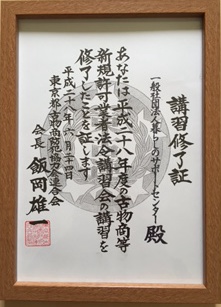 講習修了証
一般社団法人暮らしのサポートセンター 殿
あなたは平成二十八年度の古物商等
新規許可営業者法令講習会の講習を
修了したことを証します
平成二十八年六月二十四日
東京都古物商防犯協力会連合会
会長 飯岡雄一